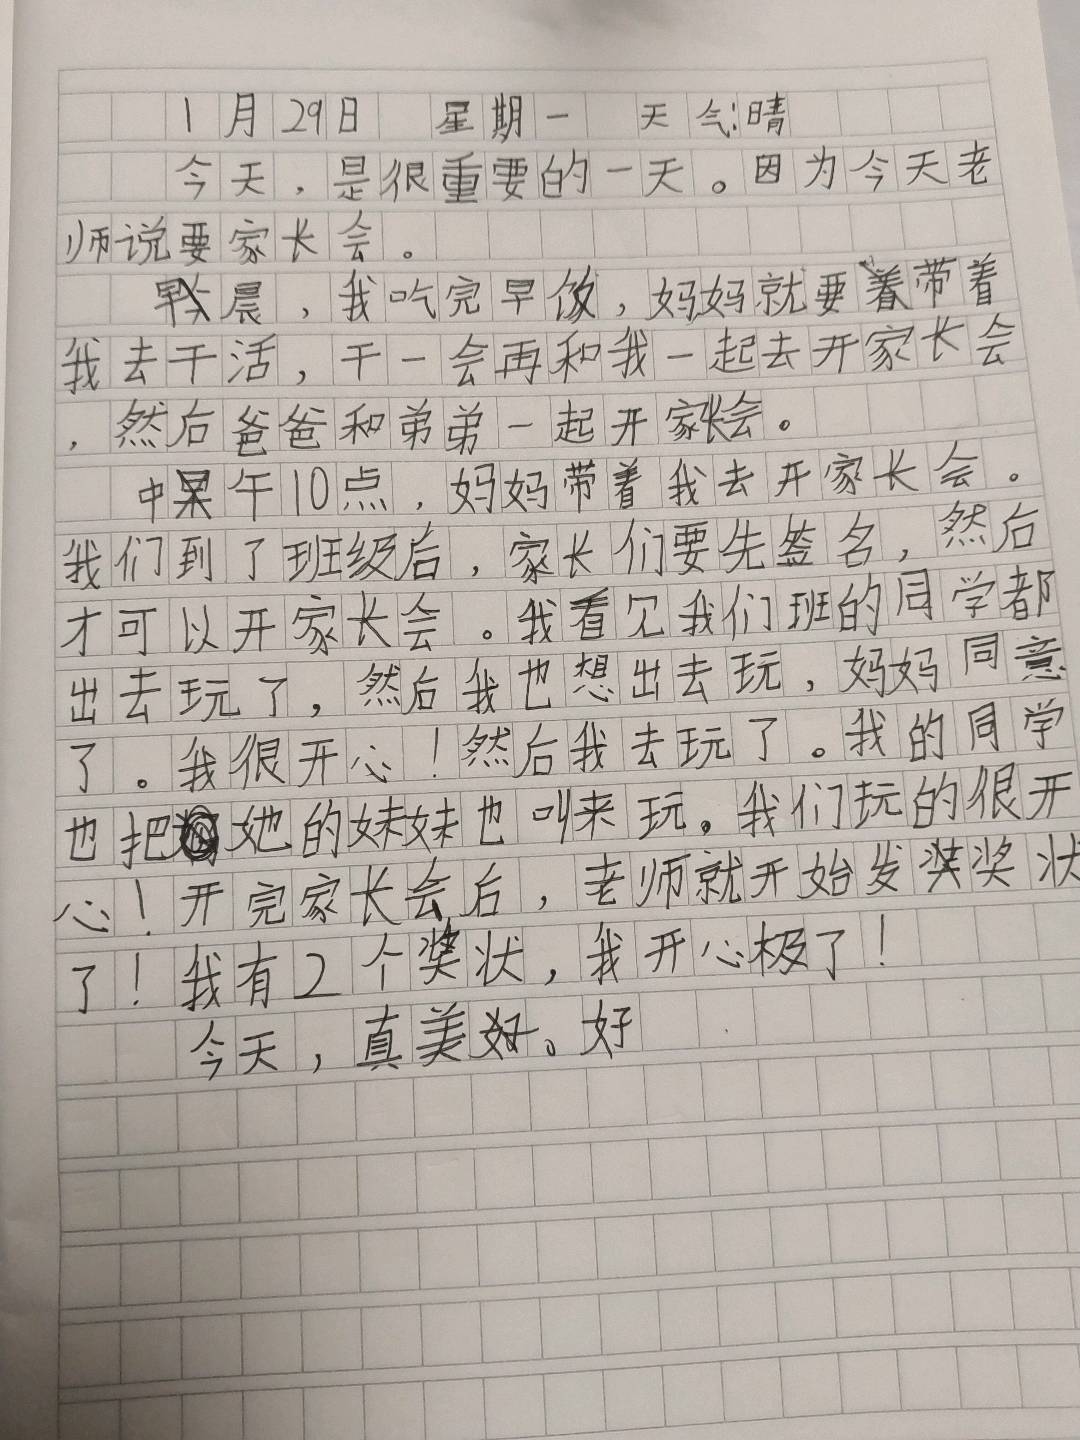 1月29日 星期一 天气:晴
今天，是很重要的一天。因为今天老
师说要家长会。
晨，我吃完早饭，妈妈就要带着
我去干活，干一会再和我一起去开家长会
，然后爸爸和弟弟一起开家长会。
中午10点，妈妈带着我去开家长会。
我们到了班级后，家长们要先签名，然后
才可以开家长会。我看见我们班的同学都
出去玩了，然后我也想出去玩，妈妈同意
了。我很开心！然后我去玩了。我的同学
也把她的妹妹也叫来玩。我们玩的很开
心！开完家长会后，老师就开始发奖状
了！我有2个奖状，我开心极了！
今天，真美好。好